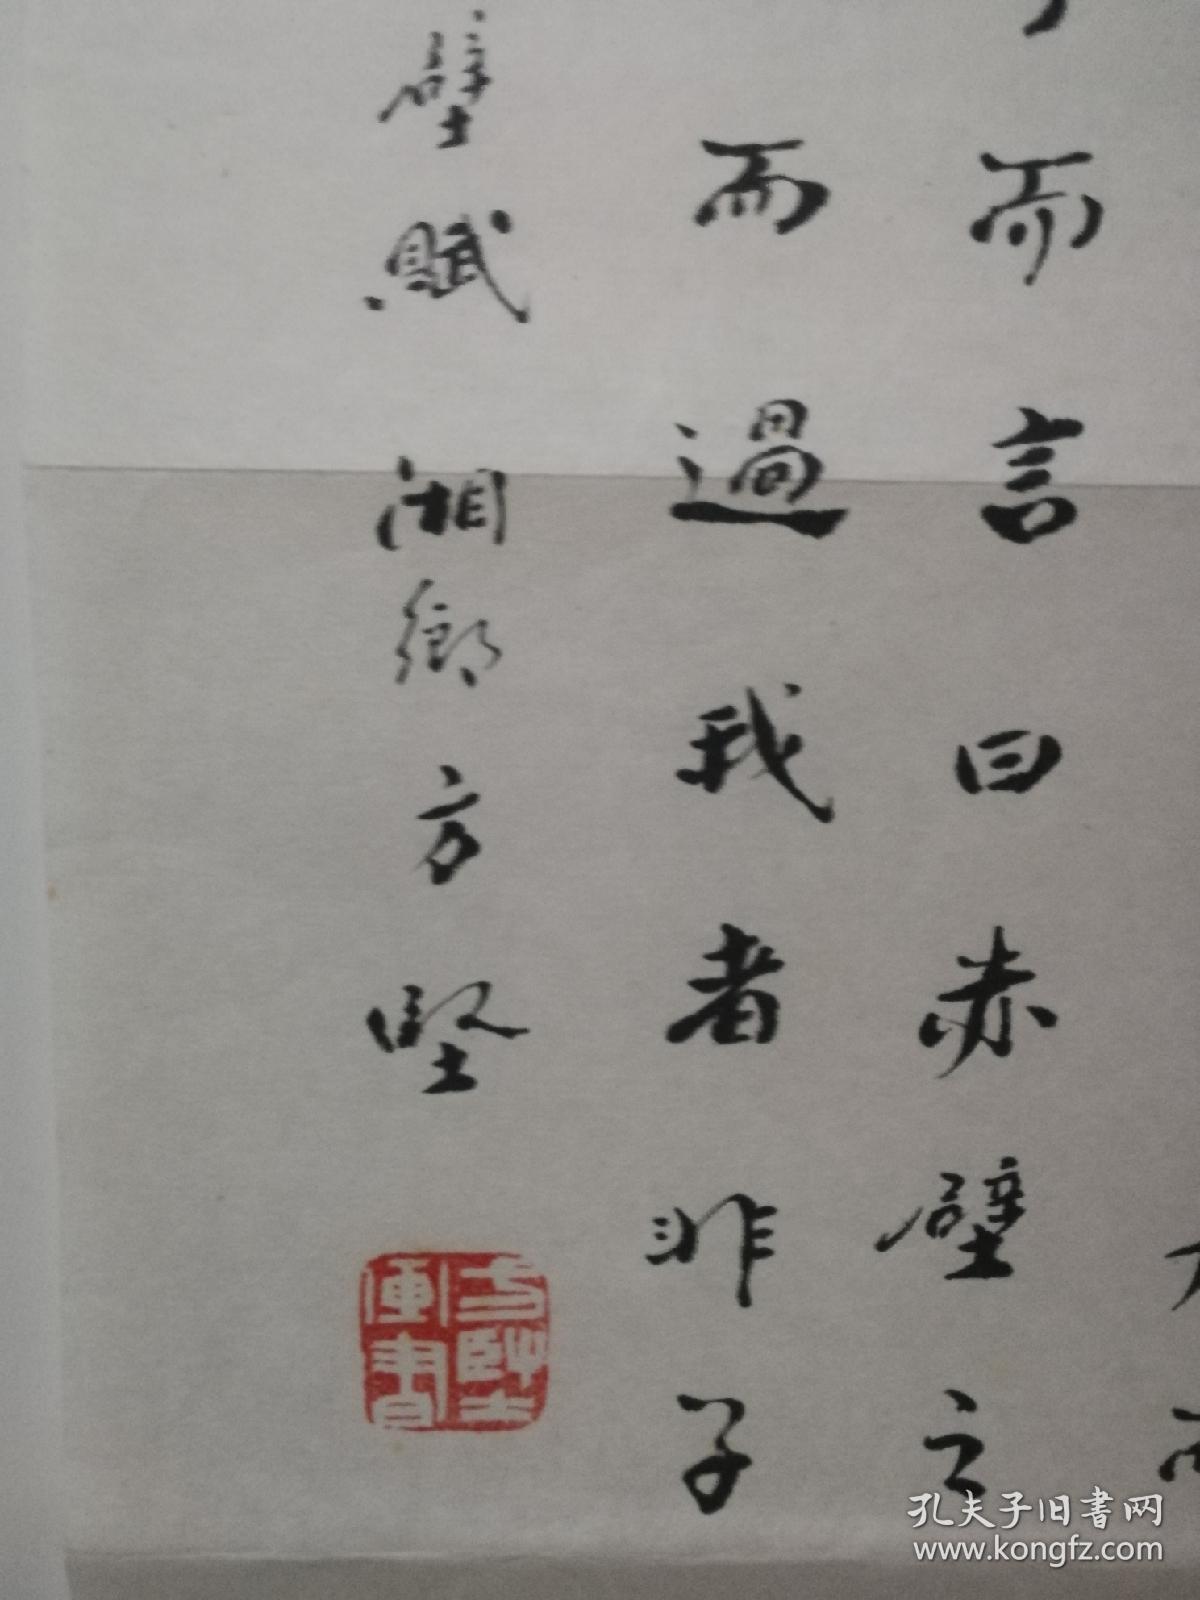 而言曰赤壁之
而過我者非子
壁賦 湘鄉方堅
方堅
便書
孔夫子旧書网
www.kongfz.com